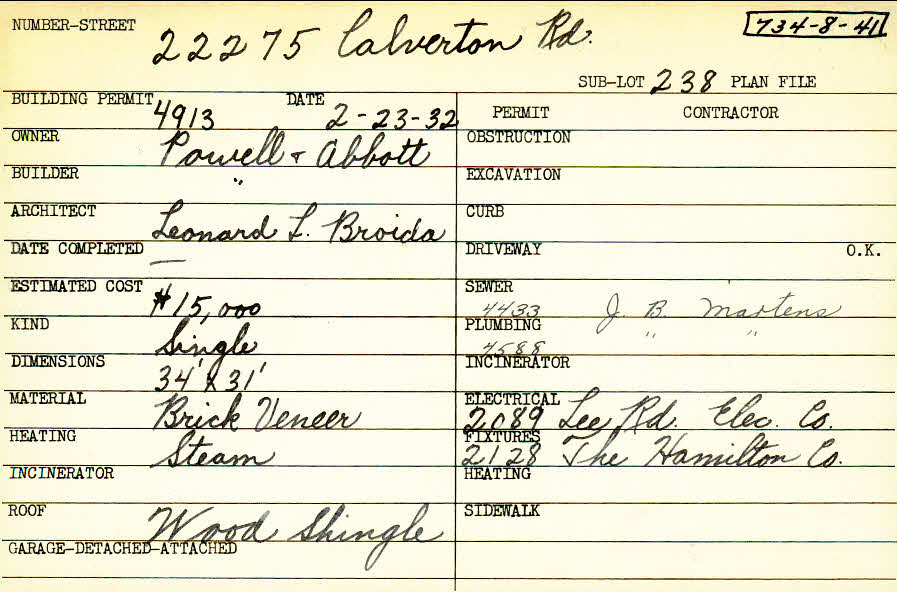 NUMBER-STREET 22275 Calverton Rd. 734-8-41
SUB-LOT 238 PLAN FILE
BUILDING PERMIT 4913 DATE 2-23-32 PERMIT CONTRACTOR
OWNER Powell & Abbott OBSTRUCTION
BUILDER " EXCAVATION
ARCHITECT Leonard L. Broida CURB
DATE COMPLETED — DRIVEWAY O.K.
ESTIMATED COST $15,000 SEWER 4433 J. B. Martens
KIND Single PLUMBING 4588 " "
DIMENSIONS 34' x 31' INCINERATOR
MATERIAL Brick Veneer ELECTRICAL 2089 Lee Rd. Elec. Co.
HEATING Steam FIXTURES 2128 The Hamilton Co.
INCINERATOR HEATING
ROOF Wood Shingle SIDEWALK
GARAGE-DETACHED-ATTACHED